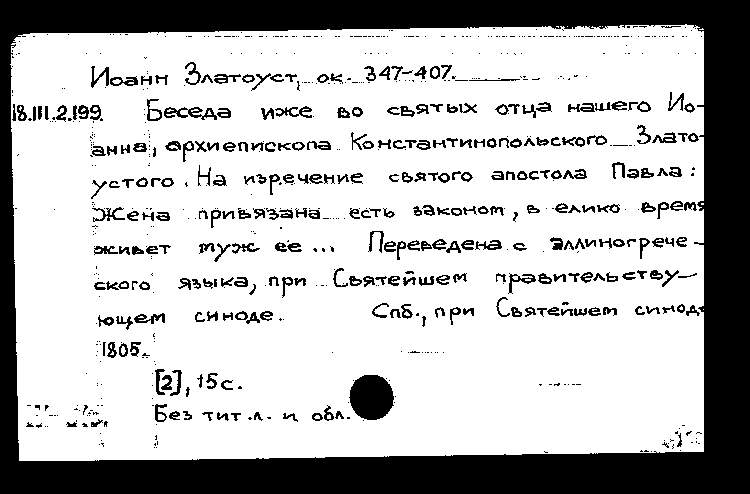 Иоанн Златоуст, ок. 347-407.
18.III.2.199. Беседа иже во святых отца нашего Ио-
анна, архиепископа Константинопольского Злато-
устого. На изречение святого апостола Павла:
Жена привязана есть законом, в елико время
живет муж ее ... Переведена с эллиногрече-
ского языка, при Святейшем правительству-
ющем синоде. Спб., при Святейшем синоде
1805.
[2], 15 с.
Без тит.л. и обл.